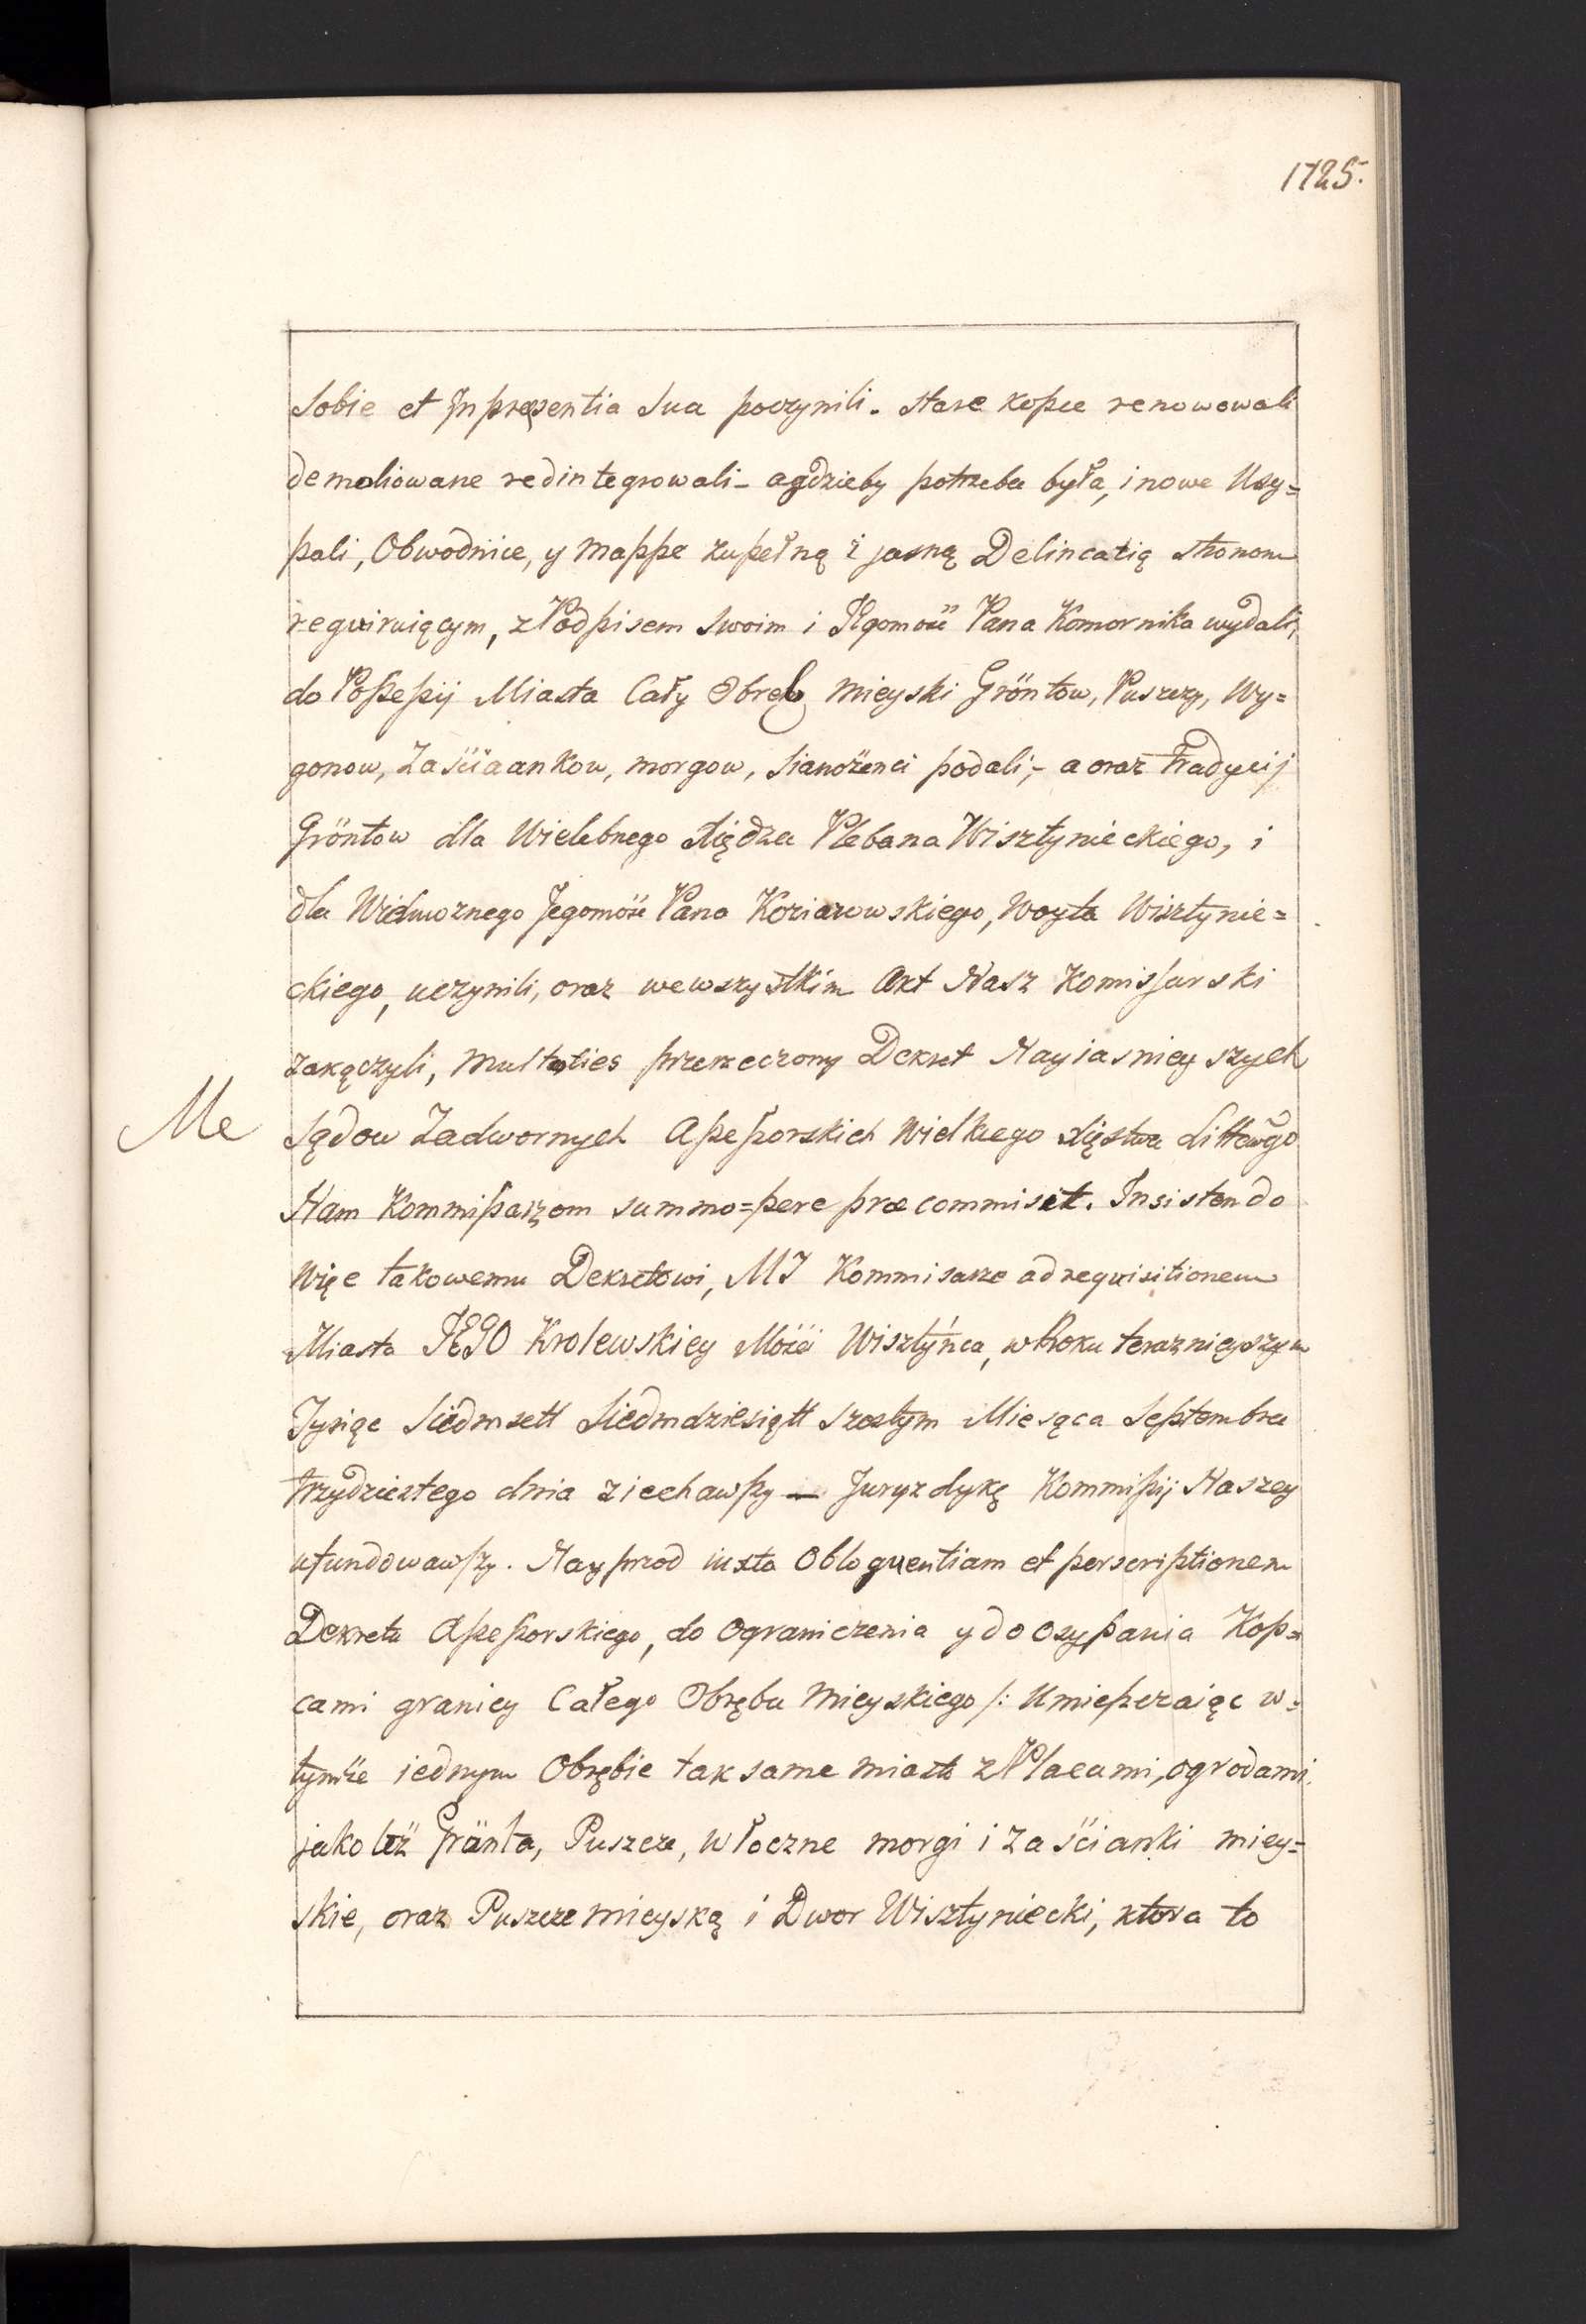 1725.
Sobie et Jn pręzentia Sua poczynili. Stare kopce renowowali
demoliowane redintegrowali – a gdzieby potrzeba była, i nowe Usy=
pali, Obwodnice, y Mappe zupełną i jasną Delineatią stronom
reqwiruiącym, z Podpisem Swoim i JEgomość Pana Komornika wydali,
do Poßeßyi Miasta Cały Obręb Mieyski Gröntow, Puszczy, Wy=
gonow, Zasciaankow, morgow, Sianożenci podali; – a oraz Tradycij
Gröntow dla Wielebnego Xiędza Plebana Wisztynieckiego, i
dla Wielmoznego Jegomość Pana Koziarowskiego, Woyta Wisztynie=
ckiego, uczynili, oraz we wszystkim Akt Nasz Komissarski
zakączyli, Multoties przerzeczony Dekret Nayiasnieyszych
Me
Sądow Zadwornych Aßeßorskich Wielkiego Xięstwa Littewgo
Nam Kommißarzom summo=pere præcommisit. Insistendo
Więc takowemu Dekretowi, MJ Kommisarze ad requisitionem
Miasta JEGO Krolewskiey Mości Wisztyńca, w Roku terazniejszym
Tysiąc Siedmsett Siedmdziesiątt Szostym Miesiąca Septembra
trzydziestego dnia ziechawßy — Juryzdykę Kommißij Naszey
ufundowawßy. Nayprzod iuxta Obloquentiam et perscriptionem
Dekretu Aßeßorskiego, do Ograniczenia y do Osypania Kop=
cami granicy Całego Obrębu Mieyskiego /: Umießczaiąc w=
tymże iednym Obrębie tak same miasto z Placami, ogrodami,
jako też Gränta, Puszcze, włoczne morgi i Zaścianki miey=
skie, oraz Puszcze mieyską i Dwor Wisztyniecki, ktora to